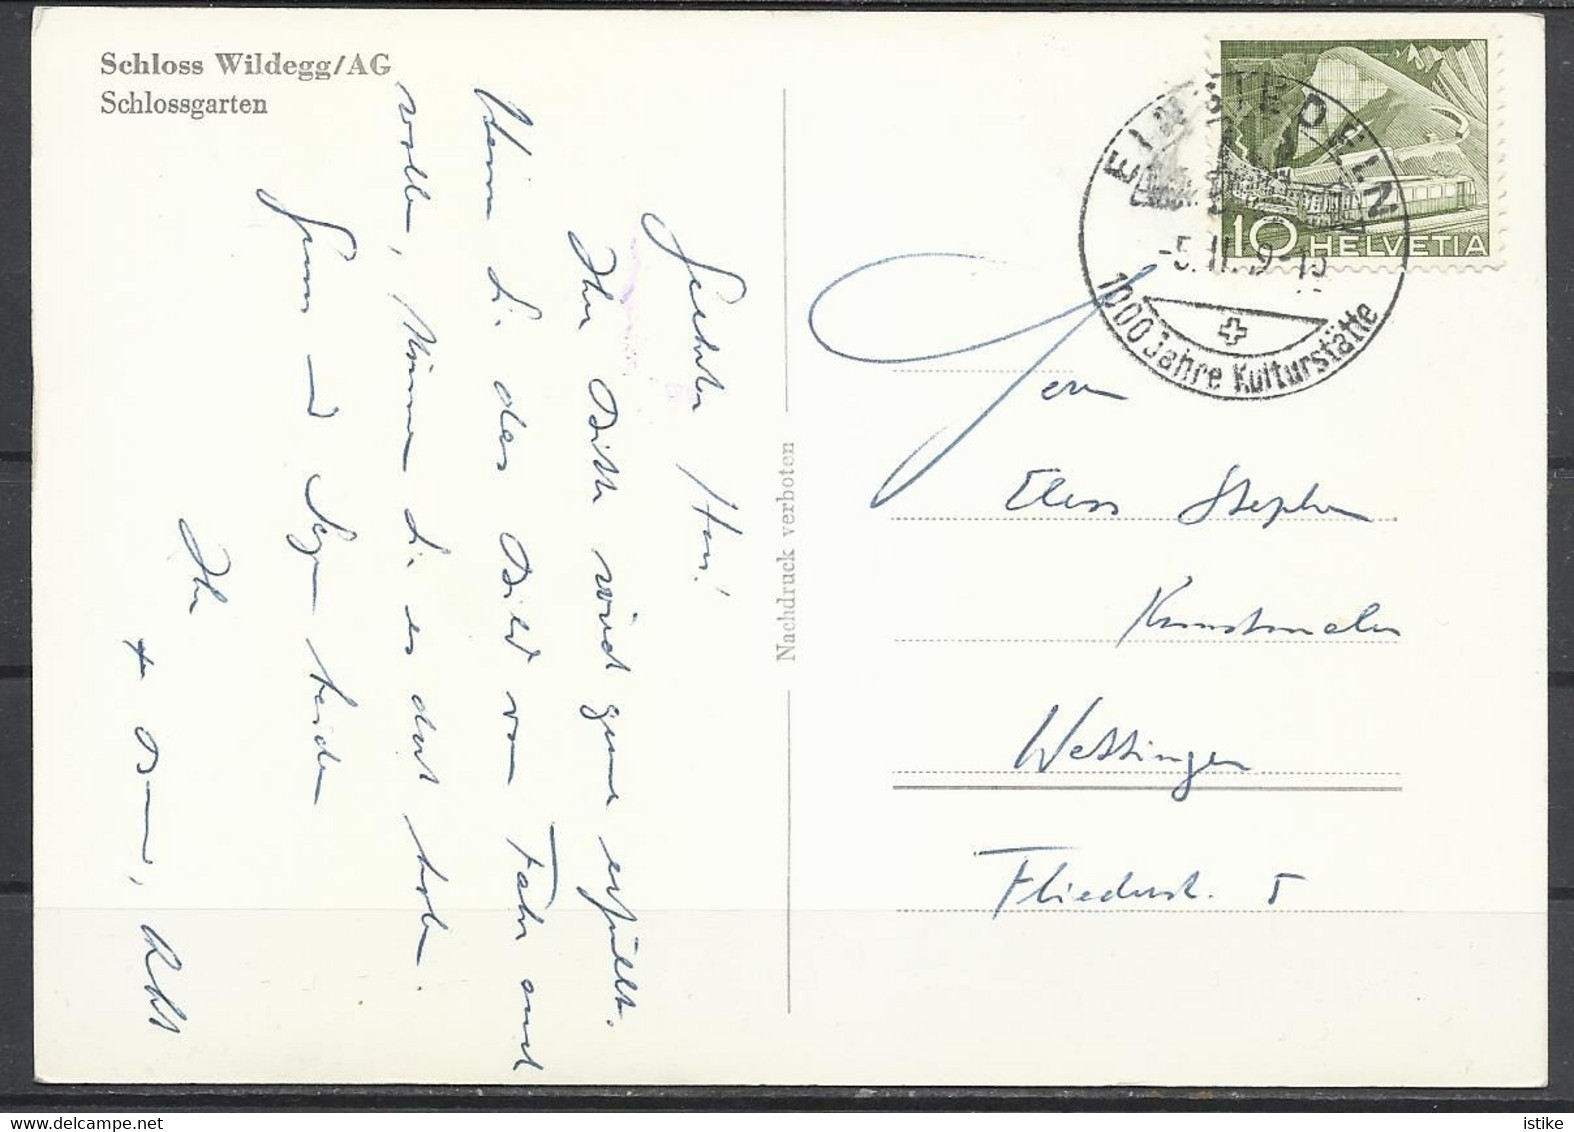 Schloss Wildegg/AG
Schlossgarten
Geehrter Herr!
Ihre Bitte wird gerne erfüllt.
Wenn Sie das Bild von Fahr auch
wollen, können Sie es dort holen.
Gruss und Segen beiden
Ihr
+ Abt
Nachdruck verboten
EINSIEDELN
-5.II.
1000 Jahre Kulturstätte
10 HELVETIA
Herrn
Stephan
Kunstmaler
Wettingen
Fliederstr. 5
istike